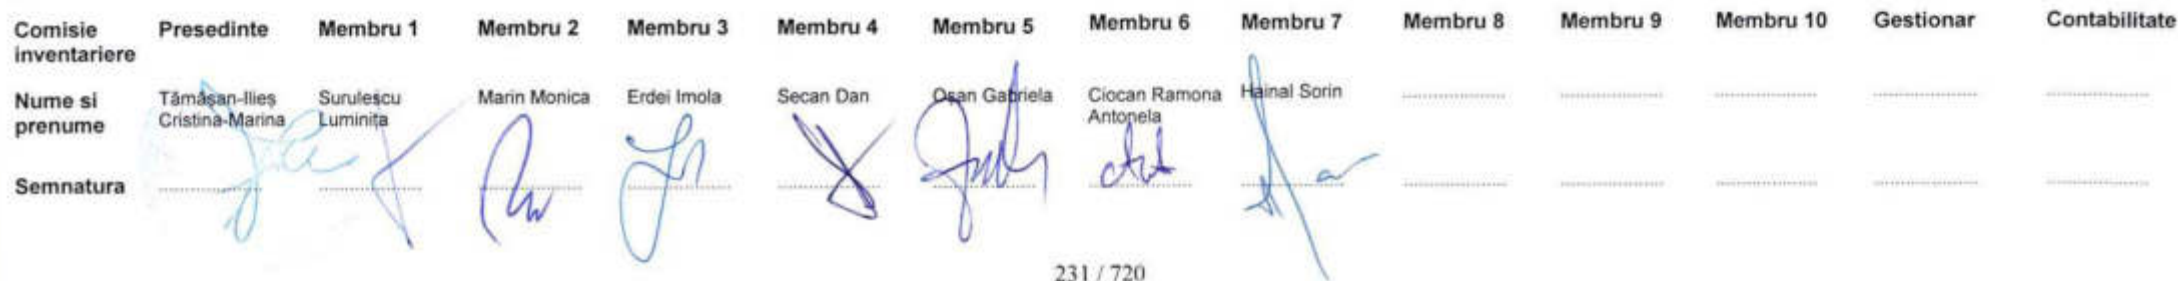 Comisie inventariere Presedinte Membru 1 Membru 2 Membru 3 Membru 4 Membru 5 Membru 6 Membru 7 Membru 8 Membru 9 Membru 10 Gestionar Contabilitate
Nume si prenume Tămâșan-Ilieș Cristina-Marina Surulescu Luminița Marin Monica Erdei Imola Secan Dan Osan Gabriela Ciocan Ramona Antonela Hainal Sorin ........................ ........................ ........................ ........................ ........................
Semnatura ........................ ........................ ........................ ........................ ........................ ........................ ........................ ........................ ........................ ........................ ........................ ........................ ........................
231 / 720